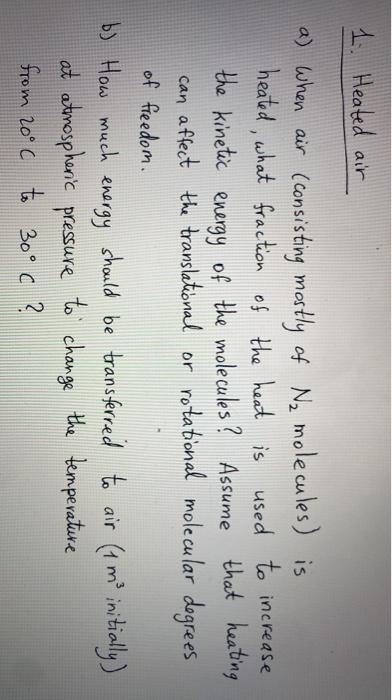 1. Heated air
a) When air (consisting mostly of N₂ molecules) is
heated, what fraction of the heat is used to increase
the kinetic energy of the molecules? Assume that heating
can affect the translational or rotational molecular degrees
of freedom.
b) How much energy should be transferred to air (1 m³ initially)
at atmospheric pressure to change the temperature
from 20°C to 30°C ?